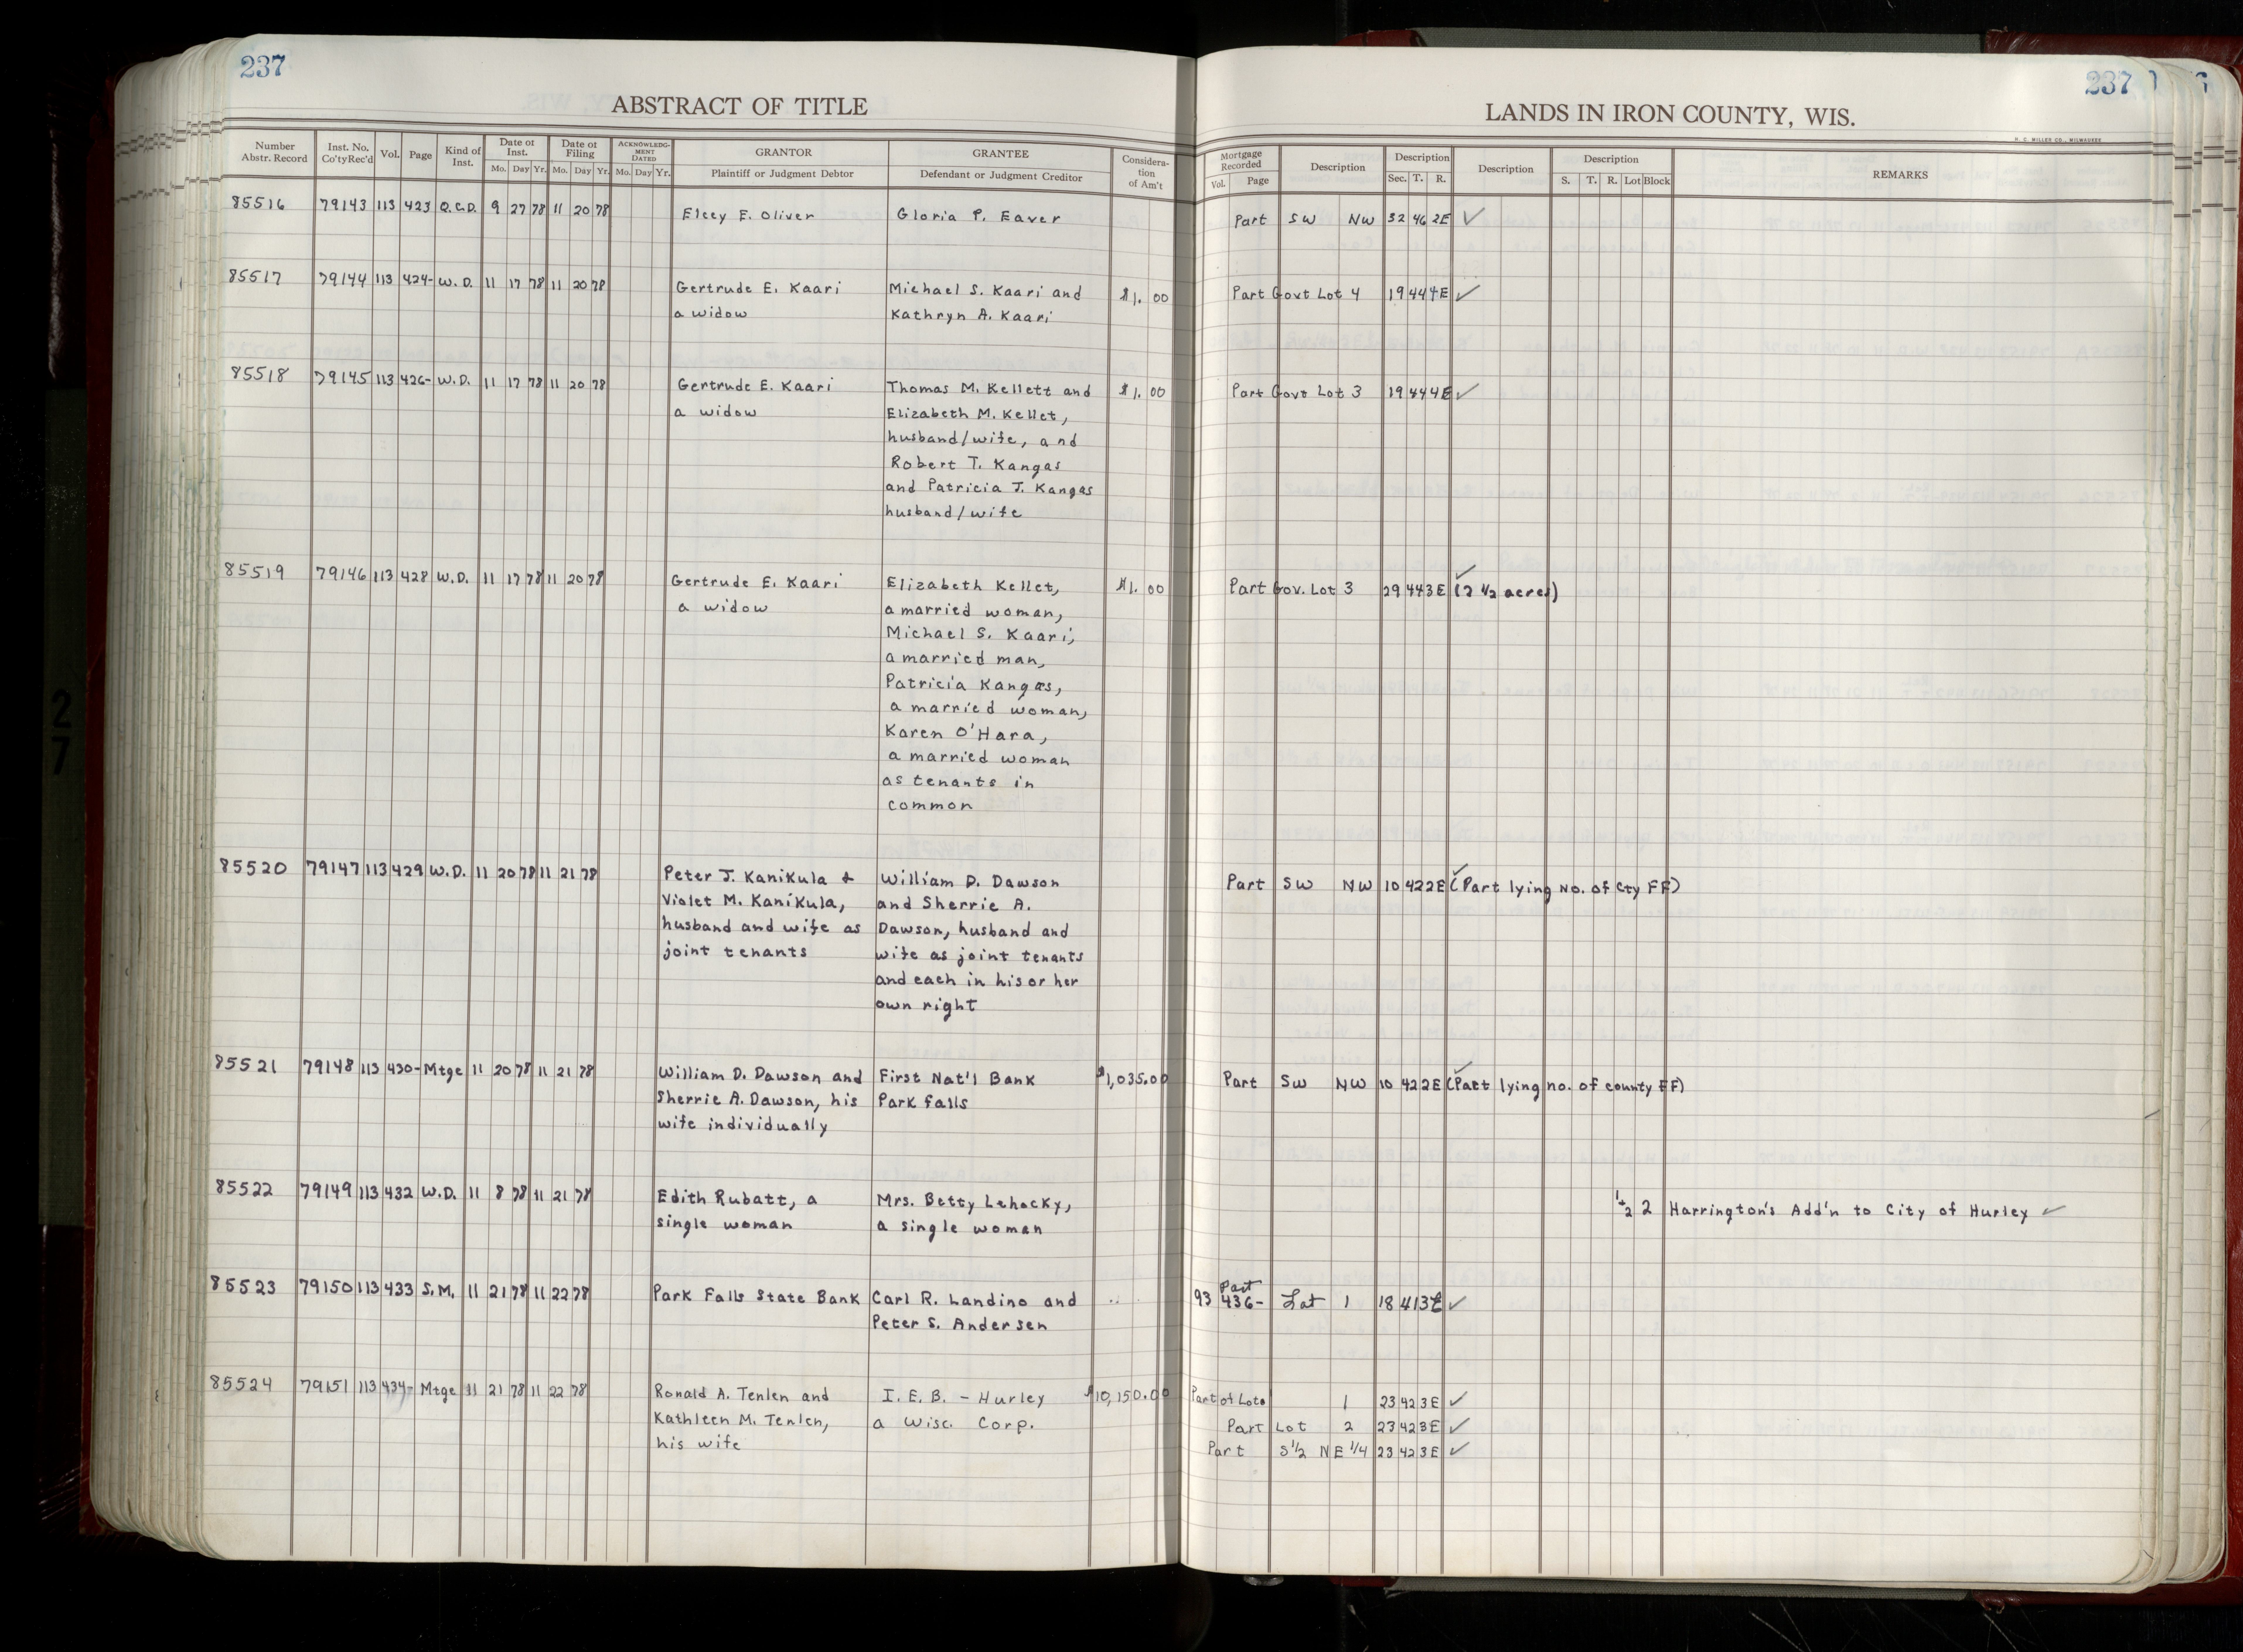 237
237
ABSTRACT OF TITLE
LANDS IN IRON COUNTY, WIS.
H. C. MILLER CO., MILWAUKEE
Number Abstr. Record | Inst. No. Co'ty Rec'd | Vol. | Page | Kind of Inst. | Date of Inst. Mo. Day Yr. | Date of Filing Mo. Day Yr. | ACKNOWLEDGMENT DATED Mo. Day Yr. | GRANTOR Plaintiff or Judgment Debtor | GRANTEE Defendant or Judgment Creditor | Consideration of Am't | Mortgage Recorded Vol. Page | Description | Description Sec. T. R. | Description | Description S. T. R. Lot Block | REMARKS
85516 79143 113 423 Q.C.D. 9 27 78 11 20 78 Elecy E. Oliver Gloria P. Eaver Part SW NW 32 46 2E ✓
85517 79144 113 424- W.D. 11 17 78 11 20 78 Gertrude E. Kaari Michael S. Kaari and $1.00 Part Govt Lot 4 19 44 4E ✓
a widow Kathryn A. Kaari
85518 79145 113 426- W.D. 11 17 78 11 20 78 Gertrude E. Kaari Thomas M. Kellett and $1.00 Part Govt Lot 3 19 44 4E ✓
a widow Elizabeth M. Kellet,
husband/wife, and
Robert T. Kangas
and Patricia J. Kangas
husband/wife
85519 79146 113 428 W.D. 11 17 78 11 20 78 Gertrude E. Kaari Elizabeth Kellet, $1.00 Part Gov. Lot 3 29 44 3E ✓ (2 1/2 acres)
a widow a married woman,
Michael S. Kaari,
a married man,
Patricia Kangas,
a married woman,
Karen O'Hara,
a married woman
as tenants in
common
85520 79147 113 429 W.D. 11 20 78 11 21 78 Peter J. Kanikula + William D. Dawson Part SW NW 10 42 2E ✓ (Part lying No. of Cty FF)
Violet M. Kanikula, and Sherrie A.
husband and wife as Dawson, husband and
joint tenants wife as joint tenants
and each in his or her
own right
85521 79148 113 430- Mtge 11 20 78 11 21 78 William D. Dawson and First Nat'l Bank $1,035.00 Part SW NW 10 42 2E ✓ (Part lying no. of county FF)
Sherrie A. Dawson, his Park Falls
wife individually
85522 79149 113 432 W.D. 11 8 78 11 21 78 Edith Rubatt, a Mrs. Betty Lehocky, 1+2 2 Harrington's Add'n to City of Hurley ✓
single woman a single woman
85523 79150 113 433 S.M. 11 21 78 11 22 78 Park Falls State Bank Carl R. Landino and 93 436- Part Lot 1 18 41 3E ✓
Peter S. Andersen
85524 79151 113 434- Mtge 11 21 78 11 22 78 Ronald A. Tenlen and I.E.B. - Hurley $10,150.00 Part of Lots 1 23 42 3E ✓
Kathleen M. Tenlen, a Wisc. Corp. Part Lot 2 23 42 3E ✓
his wife Part S 1/2 NE 1/4 23 42 3E ✓